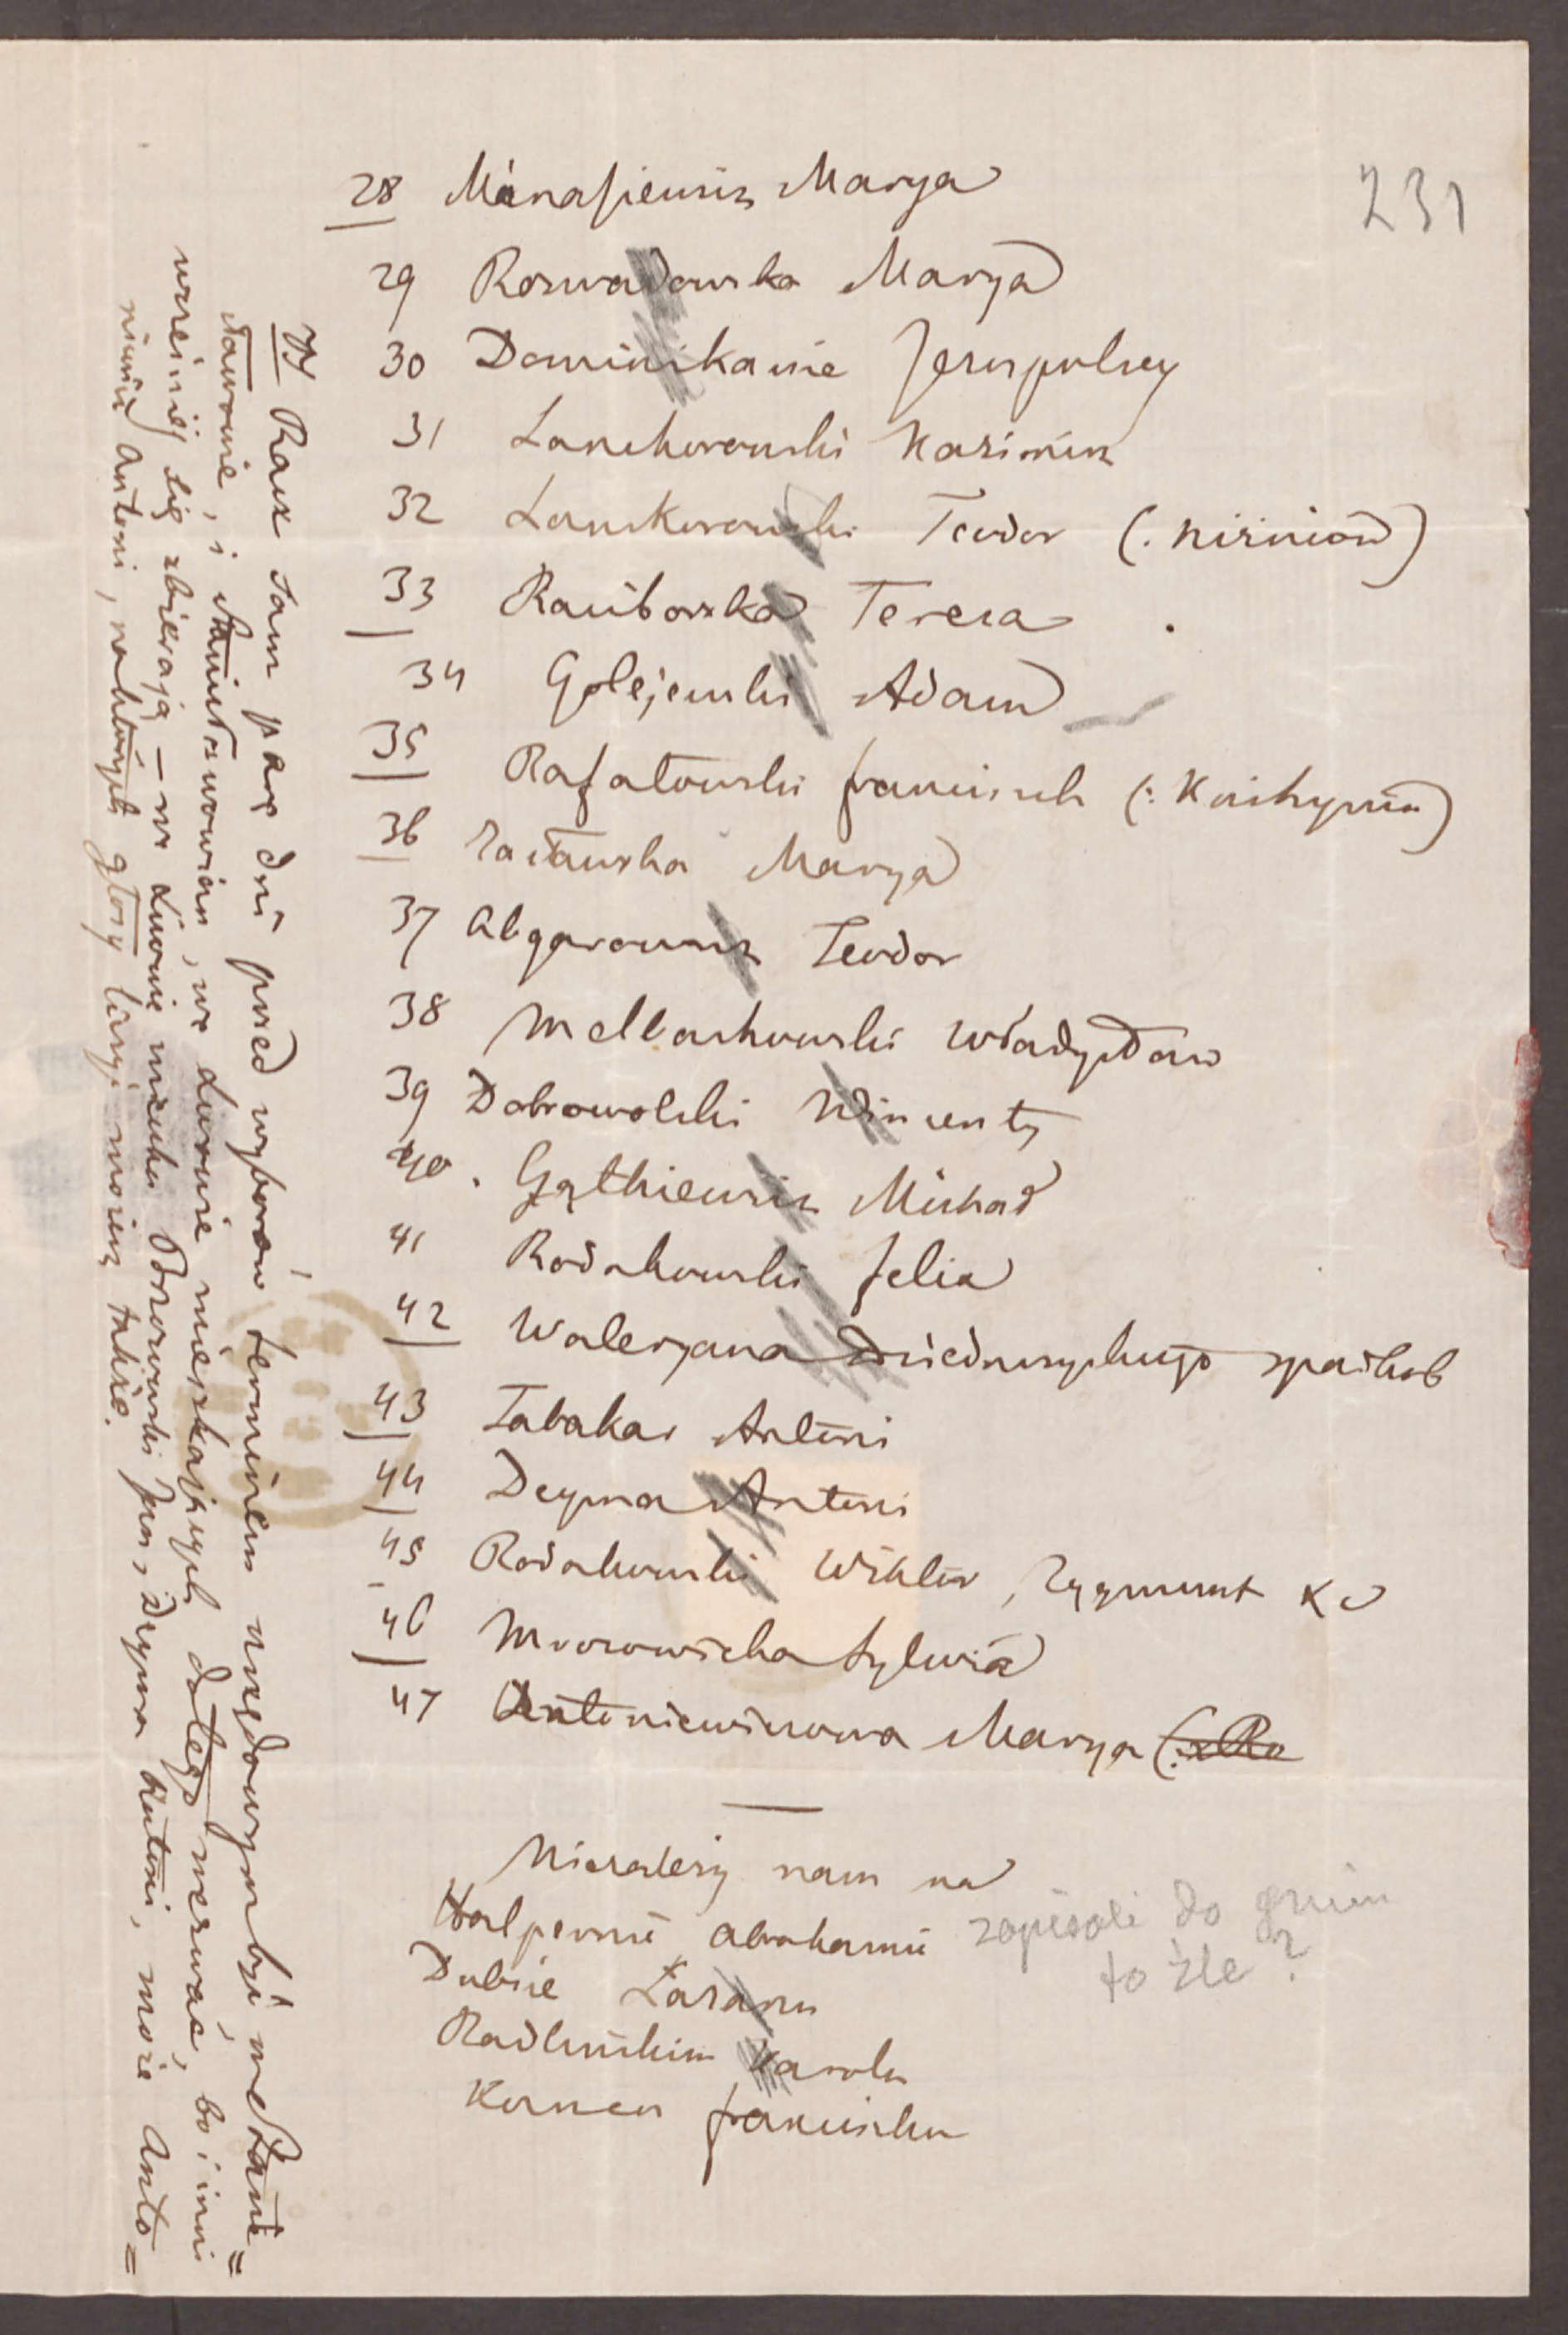 231
28 Manasiewicz Marya
29 Rozwadowska Marya
30 Dominikanie Jezupolscy
31 Lanckoroński Kazimierz
32 Lanckoroński Teodor (: Niżniów)
33 Raciborska Teresa
34 Golejewski Adam
35 Rafałowski Franciszek (: Knihynin)
36 Marya
37 Abgarowicz Teodor
38 Mellachowski Władysław
39 Dobrowolski Wincenty
40. Michał
41 Rodakowski Felix
42 Waleryana Dzieduszyckiego spadkob
43 Tabakar Antoni
44 Deyma Antoni
45 Rodakowski Wiktor, Zygmunt
46 Mrozowicka Sylwia
47 Antoniewiczowa Marya (: Ro
Niezależy nam na
Halpernie Abrahamie
Dubsie Łazarzu
Radlińskim Karolu
Franciszku
zapisali do gmin
to źle?
Racz tam parę dni przed wyborów terminem urzędowym być w Stani=
sławowie, i Stanisławowian, we Lwowie mieszkających dotego wezwać, bo i inni
wcześniej się zbierają — we Lwowie mieszka Bozowski Jan, Deyma Antoni, może Anto=
niewicz Antoni, na których głosy liczyć możesz także.